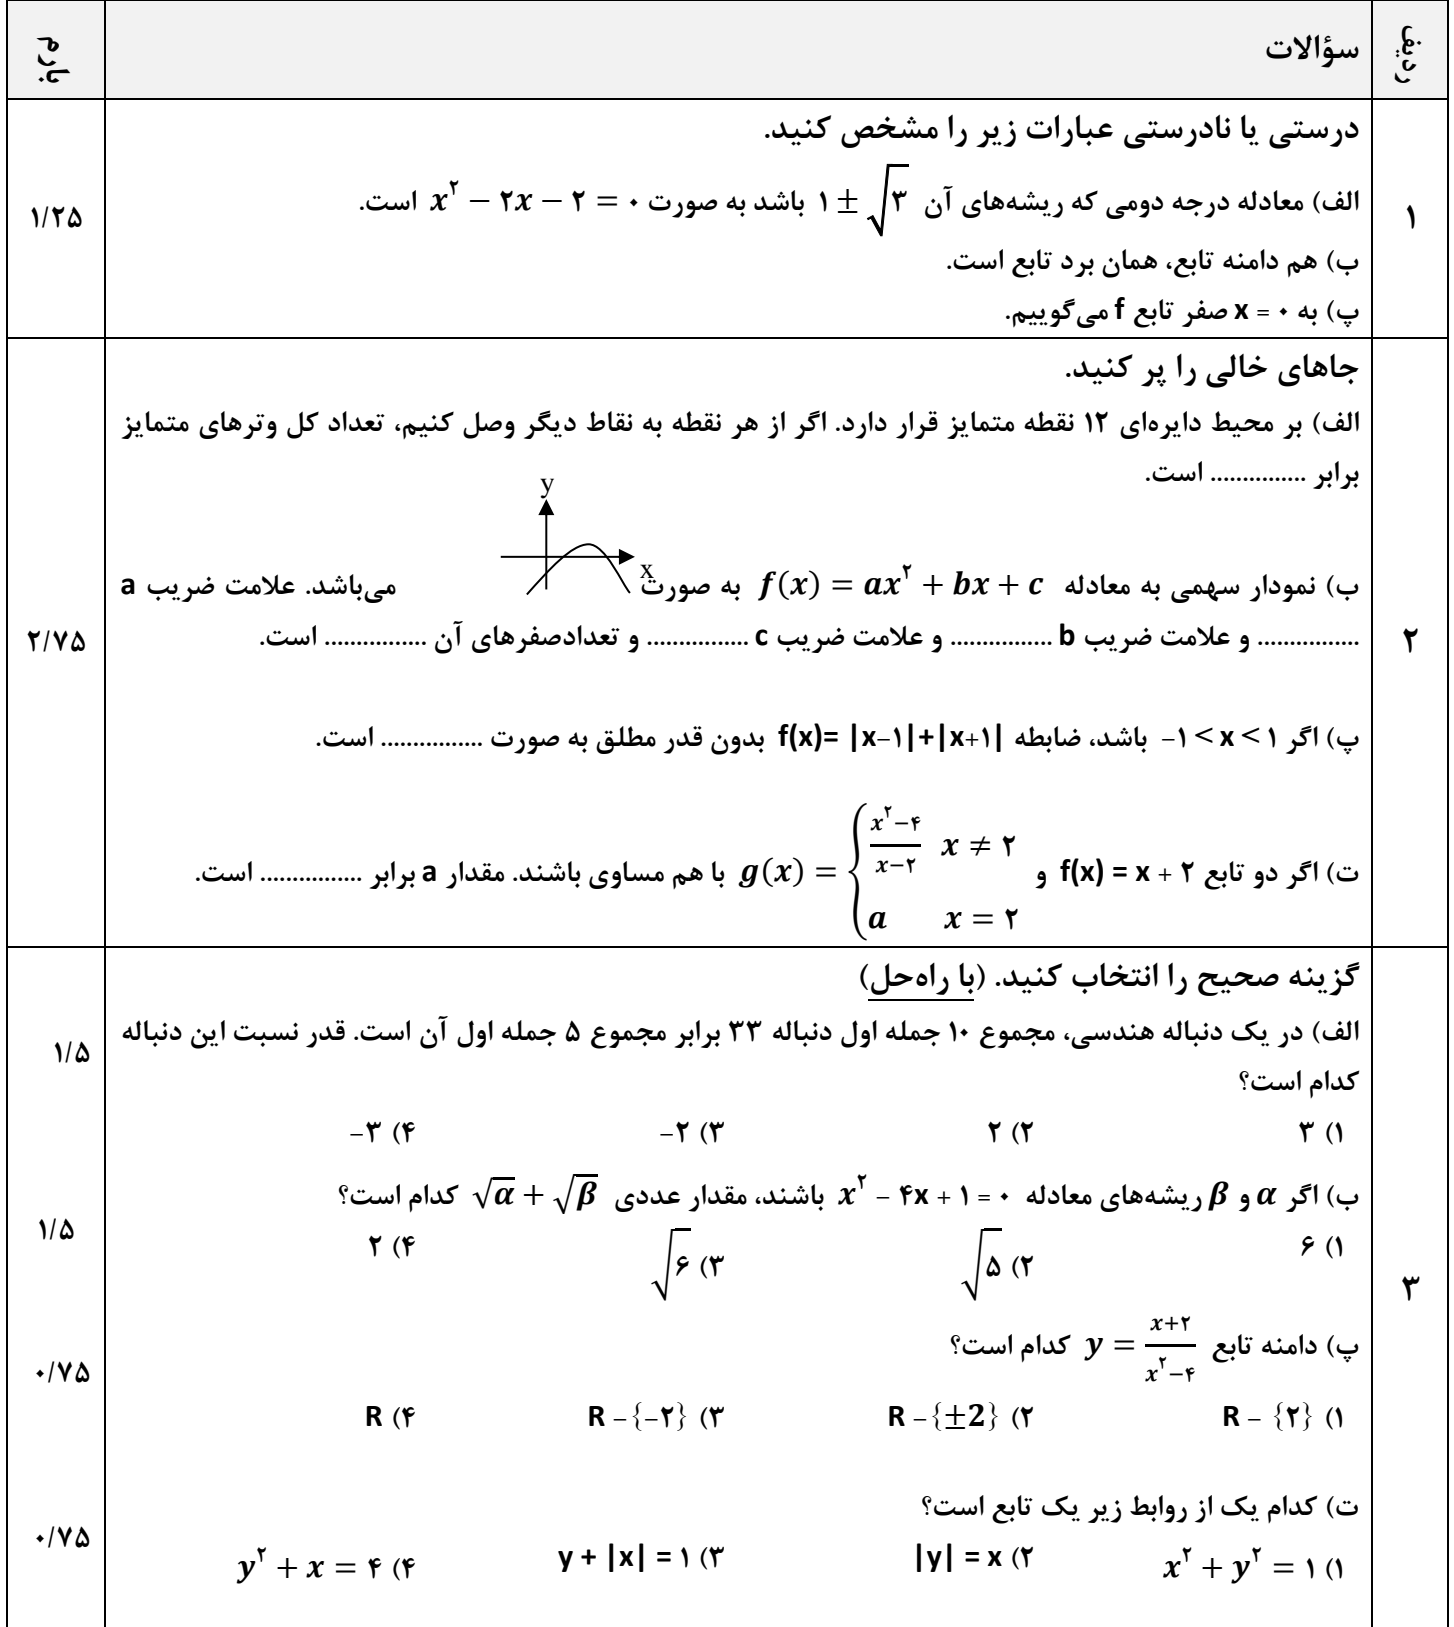 ردیف سؤالات بارم
درستی یا نادرستی عبارات زیر را مشخص کنید.
الف) معادله درجه دومی که ریشه‌های آن ۱ ± √۳ باشد به صورت x² − ۲x − ۲ = ۰ است.
۱ ۱/۲۵
ب) هم دامنه تابع، همان برد تابع است.
پ) به x = ۰ صفر تابع f می‌گوییم.
جاهای خالی را پر کنید.
الف) بر محیط دایره‌ای ۱۲ نقطه متمایز قرار دارد. اگر از هر نقطه به نقاط دیگر وصل کنیم، تعداد کل وترهای متمایز
برابر ............... است.
y
x
ب) نمودار سهمی به معادله f(x) = ax² + bx + c به صورت می‌باشد. علامت ضریب a
۲ ................ و علامت ضریب b ................ و علامت ضریب c ................ و تعدادصفرهای آن ................ است. ۲/۷۵
پ) اگر −۱ < x < ۱ باشد، ضابطه f(x)= |x−۱|+|x+۱| بدون قدر مطلق به صورت ................ است.
ت) اگر دو تابع f(x) = x + ۲ و g(x) = { (x²−۴)/(x−۲) x ≠ ۲ با هم مساوی باشند. مقدار a برابر ................ است.
a x = ۲
گزینه صحیح را انتخاب کنید. (با راه‌حل)
الف) در یک دنباله هندسی، مجموع ۱۰ جمله اول دنباله ۳۳ برابر مجموع ۵ جمله اول آن است. قدر نسبت این دنباله ۱/۵
کدام است؟
۱) ۳ ۲) ۲ ۳) −۲ ۴) −۳
ب) اگر α و β ریشه‌های معادله x² − ۴x + ۱ = ۰ باشند، مقدار عددی √α + √β کدام است؟ ۱/۵
۱) ۶ ۲) √۵ ۳) √۶ ۴) ۲
۳
پ) دامنه تابع y = (x+۲)/(x²−۴) کدام است؟ ۰/۷۵
۱) R − {۲} ۲) R −{±2} ۳) R −{−۲} ۴) R
ت) کدام یک از روابط زیر یک تابع است؟ ۰/۷۵
۱) x² + y² = ۱ ۲) |y| = x ۳) y + |x| = ۱ ۴) y² + x = ۴